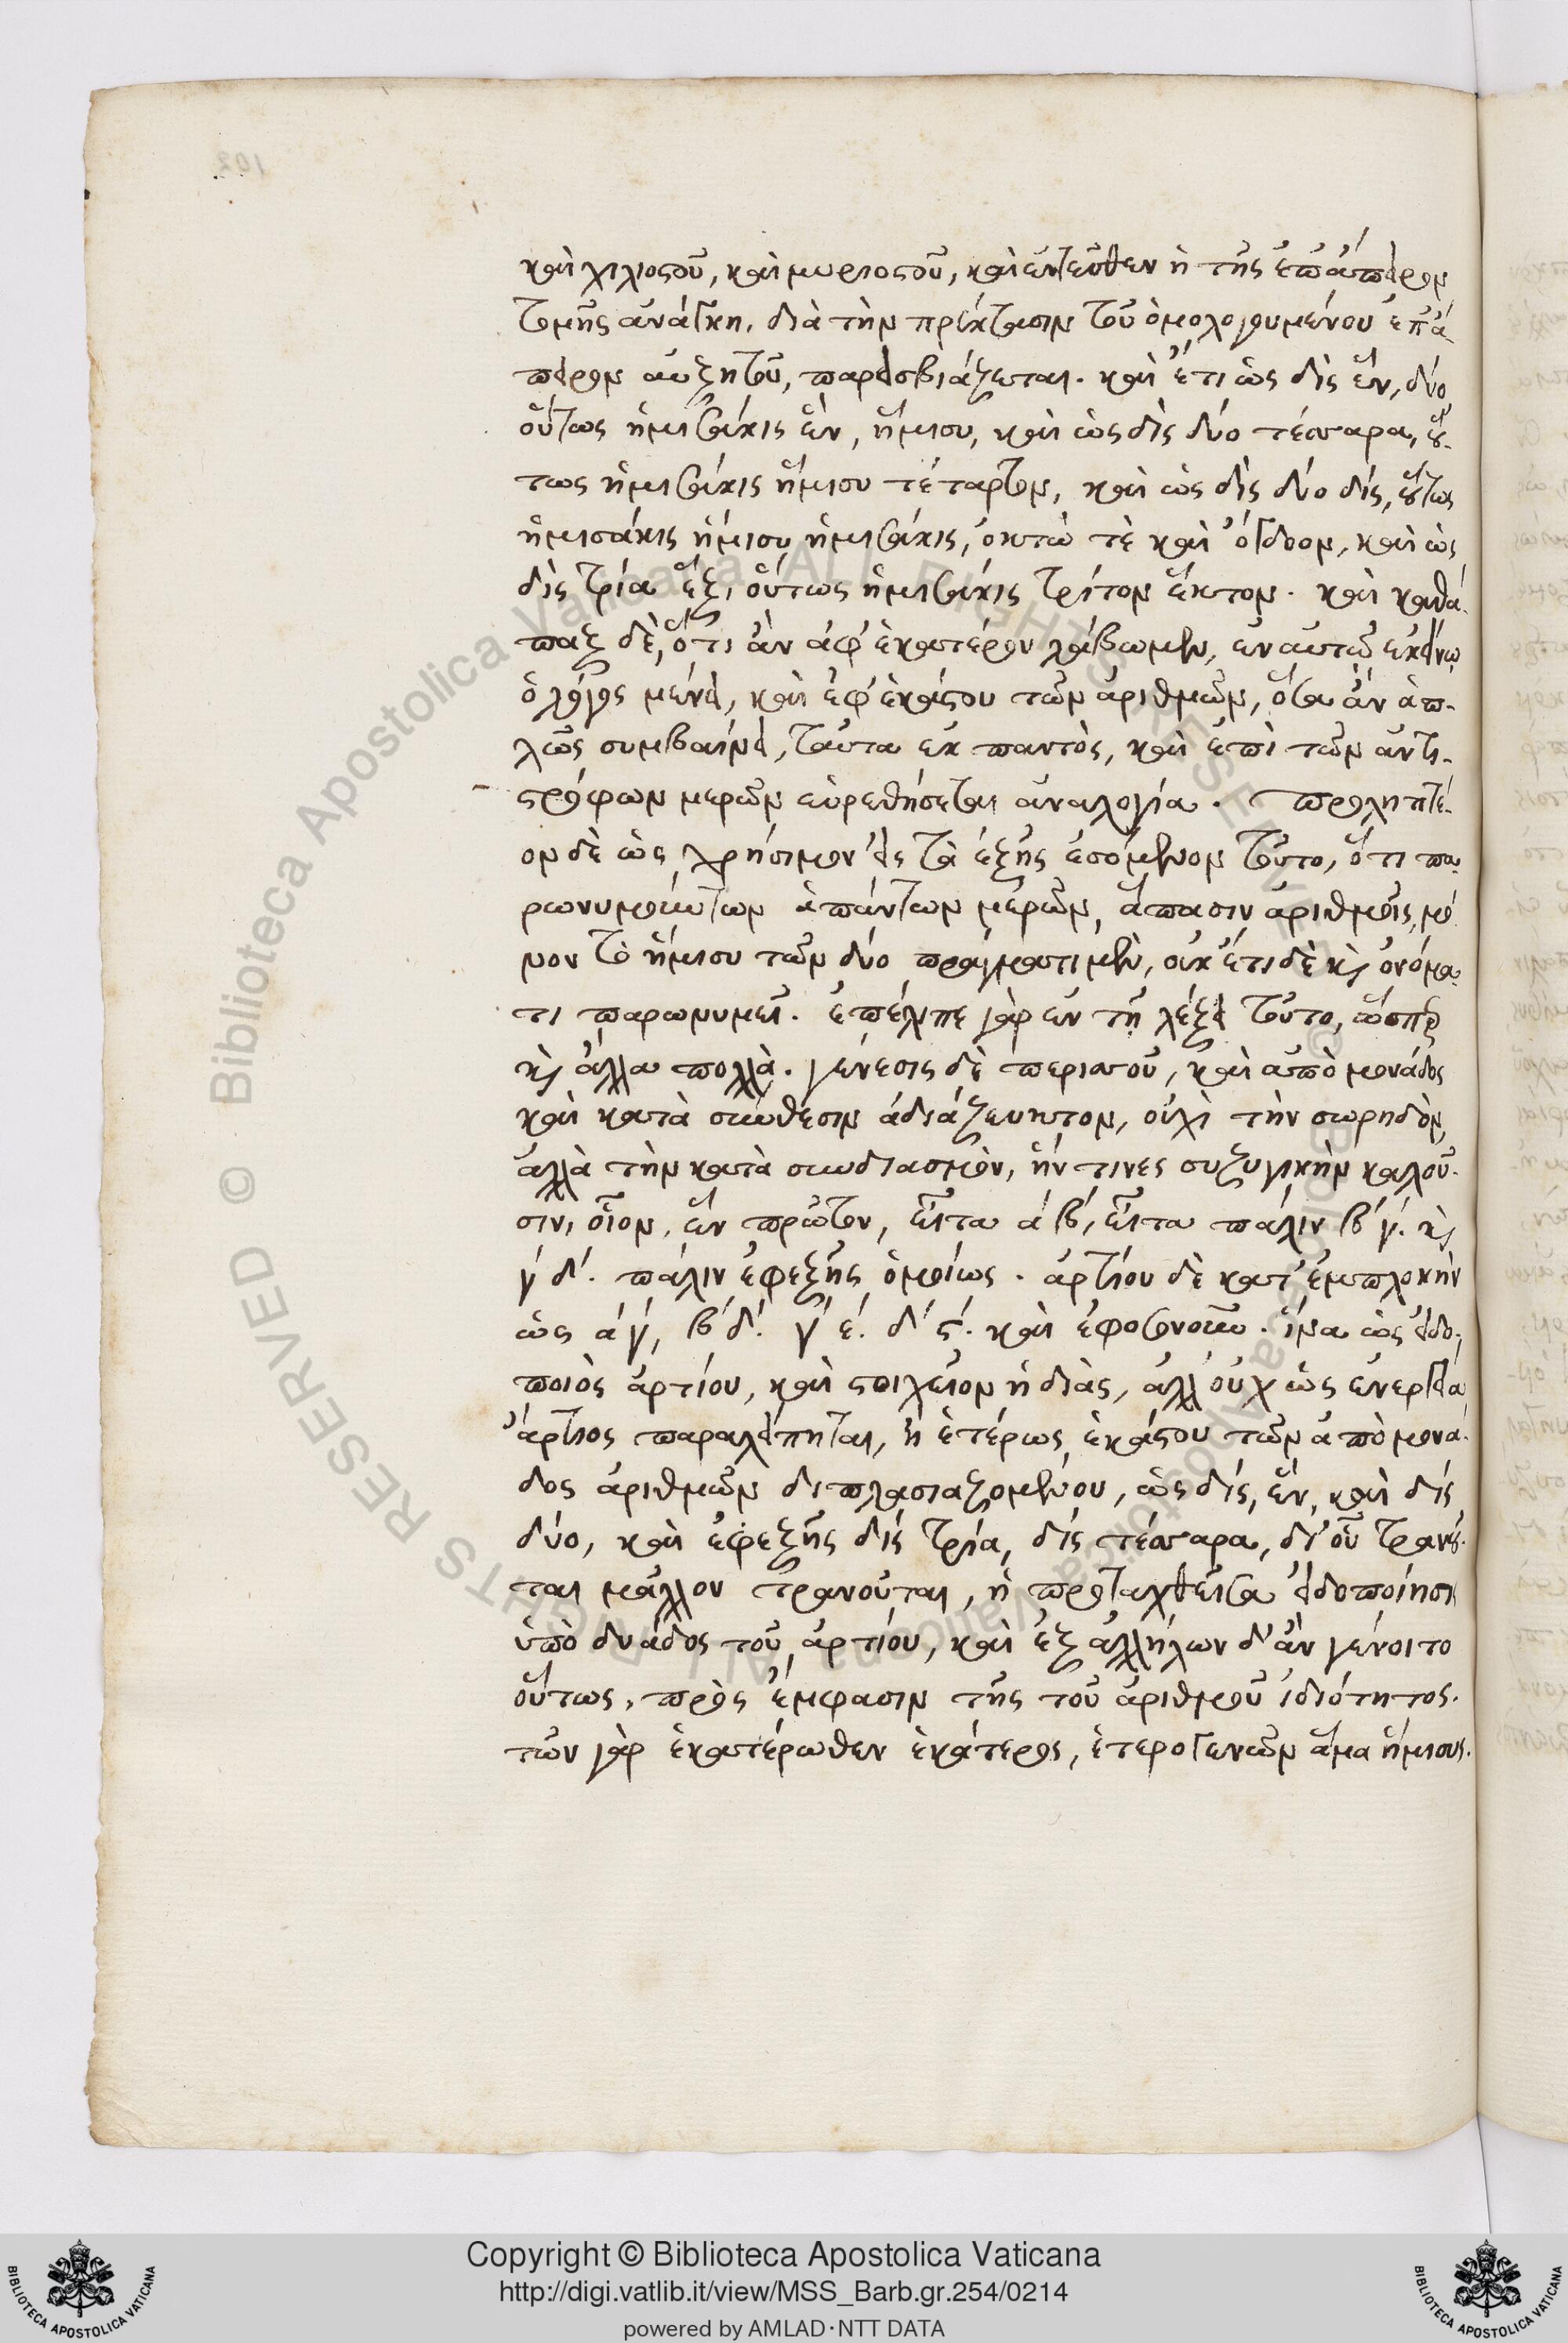 καὶ χιλιοστοῦ, καὶ μυριοστοῦ, καὶ ἐντεῦθεν ἡ τῆς ἐπ' ἄπειρον
τομῆς ἀνάγκη, διὰ τὴν παρέκτασιν τοῦ ὁμολογουμένου ἐπ' ἄ-
πειρον αὐξητοῦ, παρεισβιάζεται. καὶ ἔτι ὡς δὶς ἓν, δύο
οὕτως ἡμισάκις ἓν, ἥμισυ, καὶ ὡς δὶς δύο τέσσαρα, οὕ-
τως ἡμισάκις ἥμισυ τέταρτον, καὶ ὡς δὶς δύο δίς, οὕτως
ἡμισάκις ἥμισυ ἡμισάκις, ὀκτώ τὲ καὶ ὄγδοον, καὶ ὡς
δὶς τρία ἕξ, οὕτως ἡμισάκις τρίτον ἕκτον. καὶ καθά-
παξ δὲ, ὅτι ἂν ἀφ' ἑκατέρου λάβωμεν, ἐν αὐτῷ ἐκείνῳ
ὁ λόγος μένει, καὶ ἐφ' ἑκάστου τῶν ἀριθμῶν, ὅσα ἂν ἁπ-
λῶς συμβαίνει, ταῦτα ἐκ παντὸς, καὶ ἐπὶ τῶν ἀντι-
στρόφων μερῶν εὑρεθήσεται ἀναλογία. προληπτέ-
ον δὲ ὡς χρήσιμον εἰς τὰ ἑξῆς ἐσόμενον τοῦτο, ὅτι πα-
ρωνυμούντων ἁπάντων μερῶν, ἅπασιν ἀριθμοῖς, μό-
νον τὸ ἥμισυ τῶν δύο πράγματι μὲν, οὐκέτι δὲ καὶ ὀνόμα-
τι παρωνυμεῖ. ἐπέλιπε γὰρ ἐν τῇ λέξει τοῦτο, ὥσπερ
καὶ ἄλλα πολλὰ. γένεσις δὲ περισσοῦ, καὶ ἀπὸ μονάδος
καὶ κατὰ σύνθεσιν ἀδιάζευκτον, οὐχὶ τὴν σωρηδὸν,
ἀλλὰ τὴν κατὰ συνδιασμὸν, ἥν τινες συζυγικὴν καλοῦ-
σιν, οἷον, ἓν πρῶτον, εἶτα ά β́, εἶτα πάλιν β́ γ́. καὶ
γ́ δ́. πάλιν ἐφεξῆς ὁμοίως. ἀρτίου δὲ κατ' ἐμπλοκὴν
ὡς ά γ́, β́ δ́. γ́ έ. δ́ ϛ́. καὶ ἐφοσονοῦν. ἵνα ὡς εἰδο-
ποιὸς ἀρτίου, καὶ στοιχεῖον ἡ δυὰς, ἀλλ' οὐχ ὡς ἐνεργείᾳ
ἄρτιος παραλείπηται, ἢ ἑτέρως ἑκάστου τῶν ἀπὸ μονά-
δος ἀριθμῶν διπλασιαζομένου, ὡς δίς, ἓν, καὶ δὶς
δύο, καὶ ἐφεξῆς δὶς τρία, δὶς τέσσαρα, δι' οὗ
ται μᾶλλον τρανοῦται, ἡ προταχθεῖσα εἰδοποίησις
ὑπὸ δυάδος τοῦ ἀρτίου, καὶ ἐξ ἀλλήλων δ' ἂν γένοιτο
οὕτως, πρὸς ἔμφασιν τῆς τοῦ ἀριθμοῦ ἰδιότητος.
τῶν γὰρ ἑκατέρωθεν ἑκάτερος, ἑτερογενῶν ἅμα ἥμισυς.
Copyright © Biblioteca Apostolica Vaticana
http://digi.vatlib.it/view/MSS_Barb.gr.254/0214
powered by AMLAD·NTT DATA